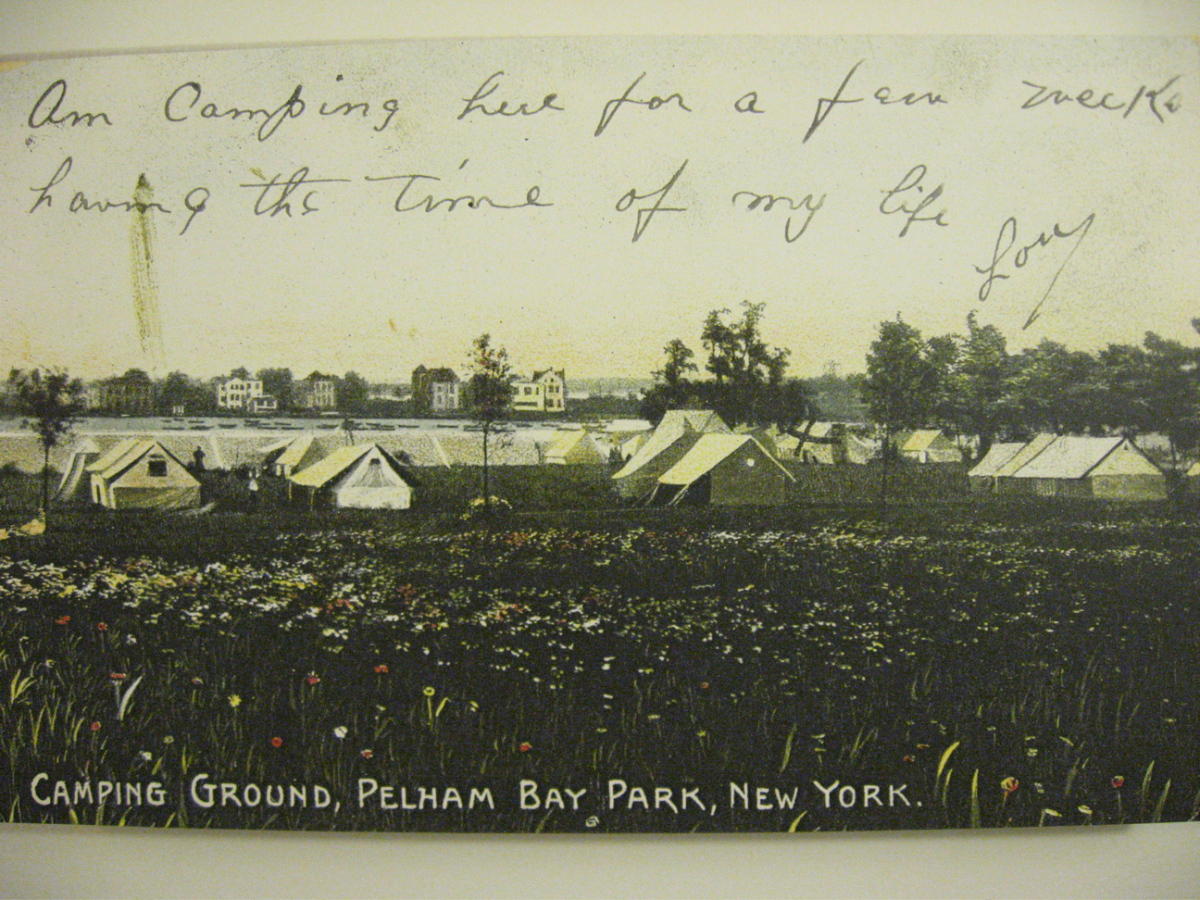 Am Camping here for a few weeks
having the time of my life
Lou
CAMPING GROUND, PELHAM BAY PARK, NEW YORK.